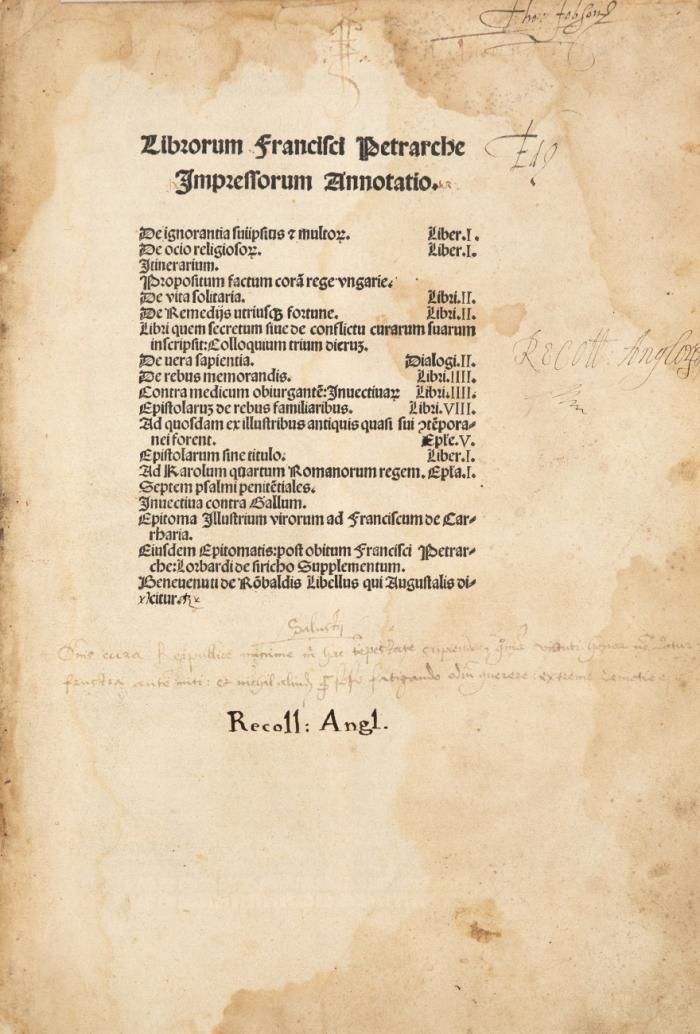 Tho: Jobson
Librorum Francisci Petrarche
Impressorum Annotatio.
De ignorantia suiipsius ⁊ multoꝝ. Liber.I.
De ocio religiosoꝝ. Liber.I.
Itinerarium.
Propositum factum corã rege vngarie.
De vita solitaria. Libri.II.
De Remedijs utriusqꝫ fortune. Libri.II.
Libri quem secretum siue de conflictu curarum suarum
inscripsit: Colloquium trium dieruꝫ.
De uera sapientia. Dialogi.II.
De rebus memorandis. Libri.IIII.
Contra medicum obiurgantẽ: Inuectiuaꝝ Libri.IIII.
Epistolaruꝫ de rebus familiaribus. Libri.VIII.
Ad quosdam ex illustribus antiquis quasi sui ↄtẽpora-
nei forent. Epłe.V.
Epistolarum sine titulo. Liber.I.
Ad Karolum quartum Romanorum regem. Epła.I.
Septem psalmi penitẽtiales.
Inuectiua contra Gallum.
Epitoma Illustrium virorum ad Franciscum de Car-
rharia.
Eiusdem Epitomatis: post obitum Francisci Petrar-
che: Lorbardi de siricho Supplementum.
Beneuenuti de Rõbaldis Libellus qui Augustalis di-
citur.
Recoll: Angloꝝ
Salustij
Recoll: Angl.